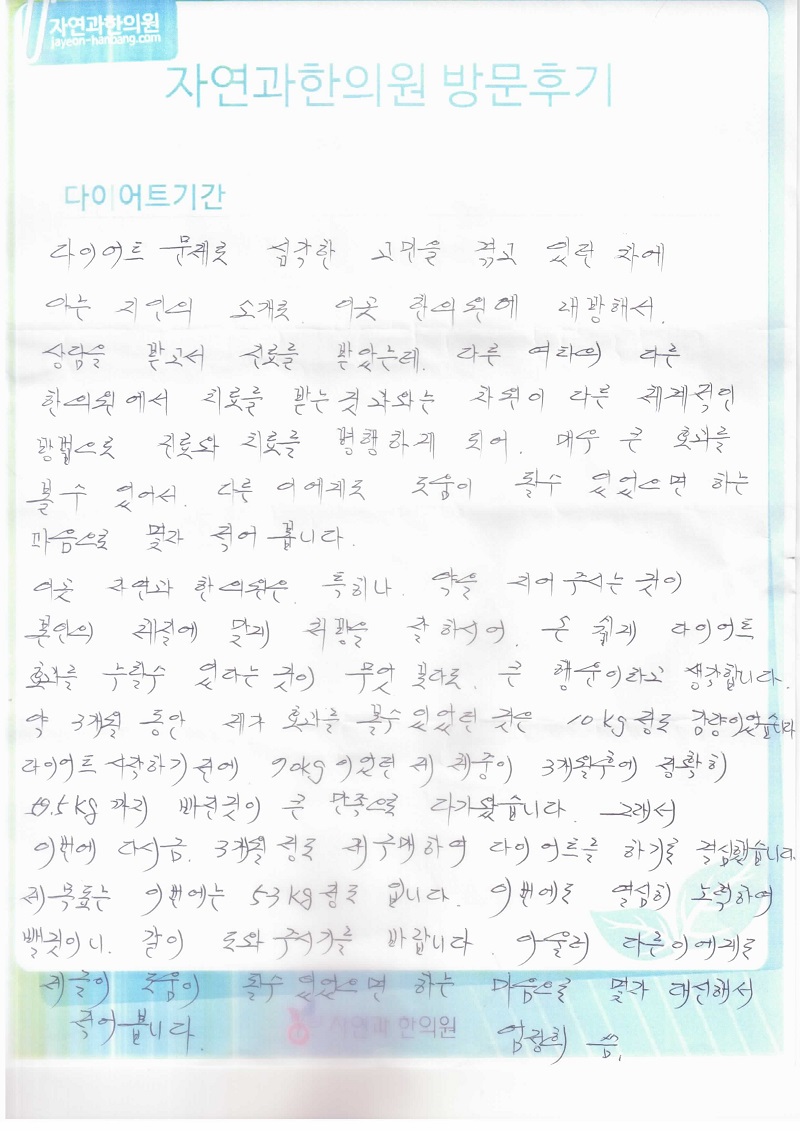 자연과한의원
jayeon-hanbang.com
자연과한의원 방문후기
다이어트기간
다이어트 문제로 심각한 고민을 겪고 있던 차에
아는 지인의 소개로. 이곳 한의원에 내방해서.
상담을 받고서 진료를 받았는데. 다른 여타의 다른
한의원에서 치료를 받는것과와는 차원이 다른 체계적인
방법으로 진료와 치료를 병행하게 되어. 매우 큰 효과를
볼 수 있어서. 다른 이에게로 도움이 될수 있었으면 하는
마음으로 몇자 적어 봅니다.
이곳 자연과 한의원은. 특히나. 약을 지어 주시는 것이
본인의 체질에 맞게 처방을 잘 하시어. 손 쉽게 다이어트
효과를 누릴수 있다는 것이 무엇 보다도. 큰 행운이라고 생각합니다.
약 3개월 동안 제가 효과를 볼수 있었던 것은 10kg 정도 감량이었습니다
다이어트 시작하기 전에 70kg이었던 제 체중이 3개월후에 정확히
59.5kg 까지 빠진것이 큰 만족으로 다가왔습니다. 그래서
이번에 다시금. 3개월 정도 재구매하여 다이어트를 하기로 결심했습니다.
제 목표는 이번에는 53kg 정도 입니다. 이번에도 열심히 노력하여
뺄것이니. 같이 도와 주시기를 바랍니다. 아울러 다른이에게로
제 글이 도움이 될수 있었으면 하는 마음으로 몇자 대신해서
적어 봅니다.
자연과 한의원
씀.